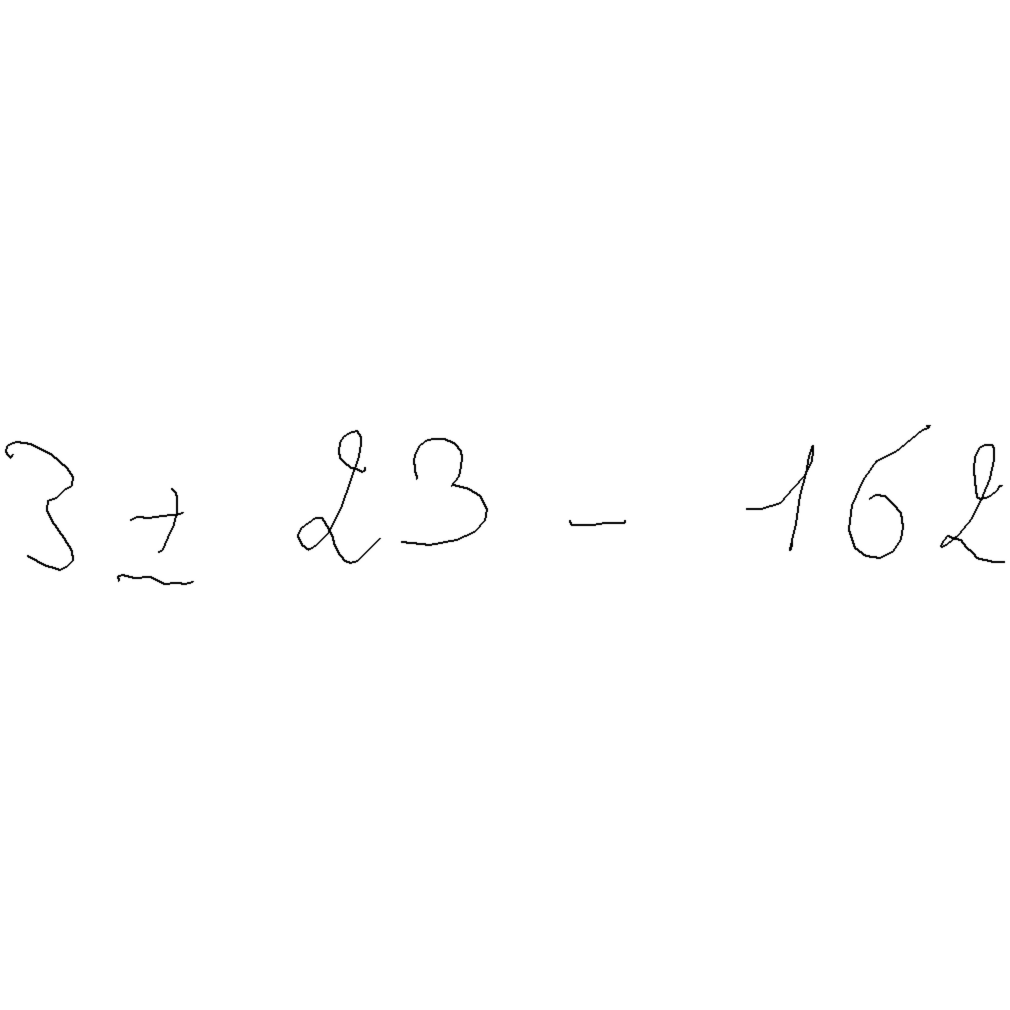 3 ± 23 - 162